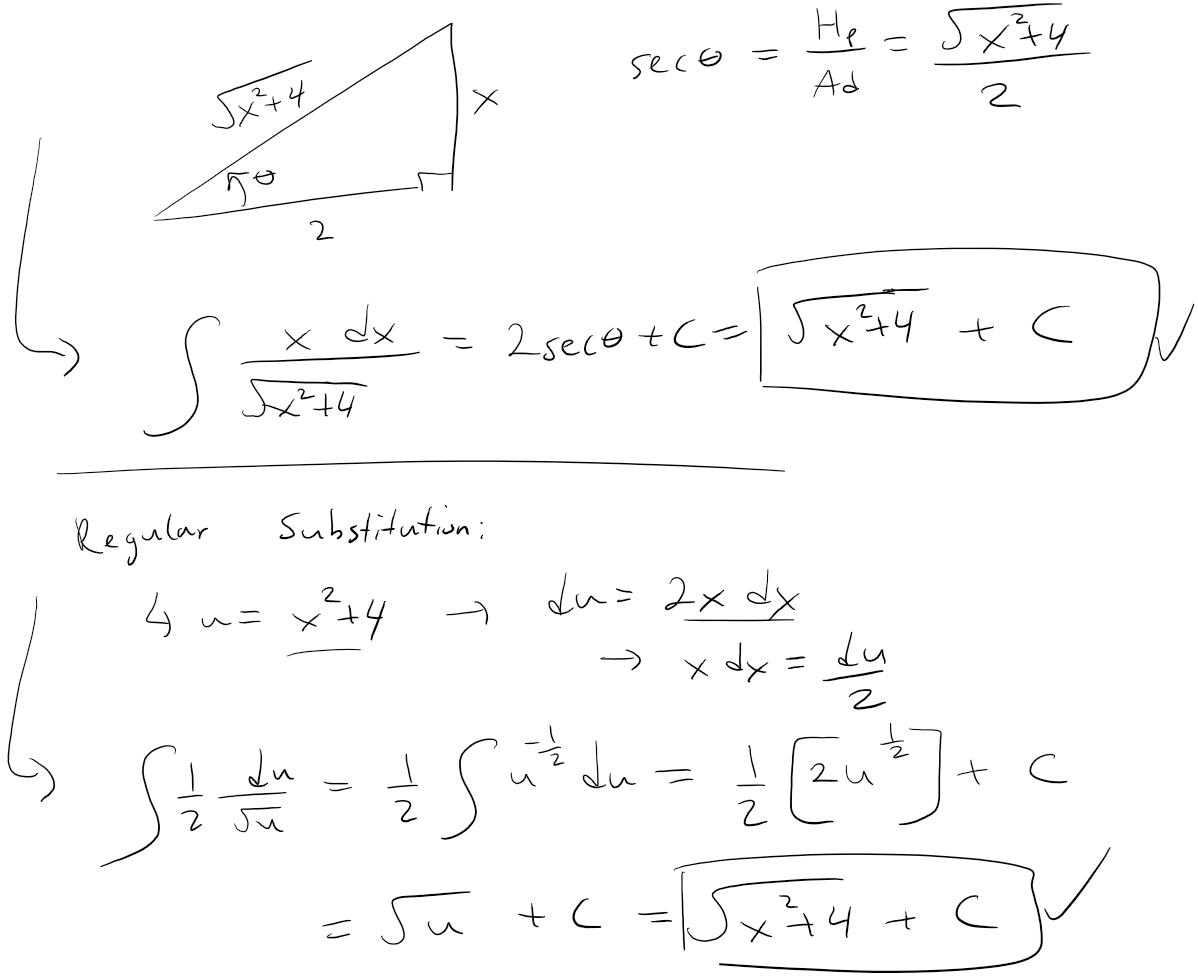 √(x²+4)
x
θ
2
secθ = Hp/Ad = √(x²+4)/2
∫ x dx/√(x²+4) = 2secθ + C = √(x²+4) + C ✓
Regular Substitution:
↳ u = x²+4 → du = 2x dx
→ x dx = du/2
∫ 1/2 du/√u = 1/2 ∫ u^(-1/2) du = 1/2 [2u^(1/2)] + C
= √u + C = √(x²+4) + C ✓